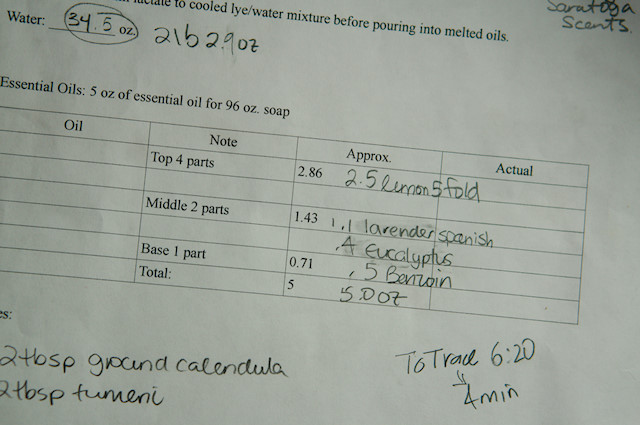 to cooled lye/water mixture before pouring into melted oils.
Saratoga
Scents.
Water: 34.5 oz 2lb 2.9oz
Essential Oils: 5 oz of essential oil for 96 oz. soap
Oil Note Approx. Actual
Top 4 parts 2.86 2.5 lemon 5 fold
Middle 2 parts 1.43 1.1 lavender spanish
.4 Eucalyptus
Base 1 part 0.71 .5 Benzoin
Total: 5 5.0oz
es:
2tbsp ground calendula
2tbsp tumeric
To Trace 6:20
4min